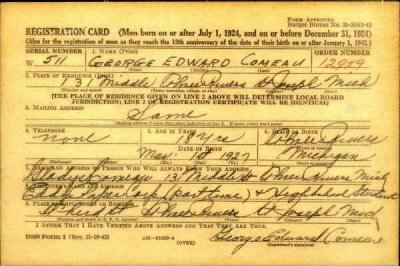 FORM APPROVED
Budget Bureau No. 33-R012-42
REGISTRATION CARD (Men born on or after July 1, 1924, and on or before December 31, 1924)
(Also for the registration of men as they reach the 18th anniversary of the date of their birth on or after January 1, 1925.)
SERIAL NUMBER 1. NAME (Print) ORDER NUMBER
W 511 GEORGE EDWARD COMEAU 12979
2. PLACE OF RESIDENCE (Print)
131 Middle Three Rivers St Joseph Mich
[THE PLACE OF RESIDENCE GIVEN ON LINE 2 ABOVE WILL DETERMINE LOCAL BOARD
JURISDICTION; LINE 2 OF REGISTRATION CERTIFICATE WILL BE IDENTICAL]
3. MAILING ADDRESS
Same
4. TELEPHONE 5. AGE IN YEARS 6. PLACE OF BIRTH
none Three Rivers
DATE OF BIRTH
1927 Michigan
7. NAME AND ADDRESS OF PERSON WHO WILL ALWAYS KNOW YOUR ADDRESS
Comeau 131 Middle St Three Rivers Mich
8. EMPLOYER'S NAME AND ADDRESS
Paper Corp (part time) & High School Student
9. PLACE OF EMPLOYMENT OR BUSINESS
Three Rivers St Joseph Mich
I AFFIRM THAT I HAVE VERIFIED ABOVE ANSWERS AND THAT THEY ARE TRUE.
DSS Form 1 (Rev. 11-16-42)
George Edward Comeau
(Registrant's signature)